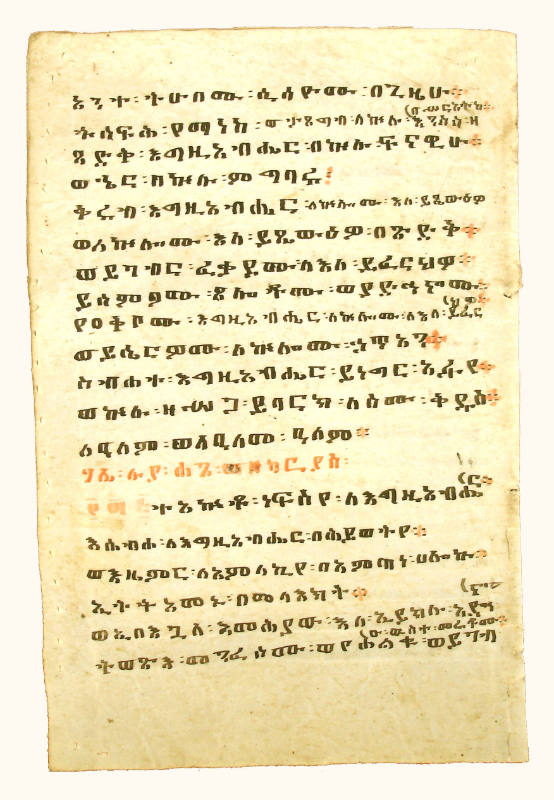 አንተ፡ትሁቦሙ፡ሲሳዮሙ፡በጊዜሁ።
ትሰፍሕ፡የማነከ፡ወታጸግብ፡ለኵሉ፡እንስሳ፡ዘ
(በሥርዓትከ።
ጻድቅ፡እግዚአብሔር፡በኵሉ፡ፍናዊሁ።
ወኄር፡በኵሉ፡ምግባሩ።
ቅሩብ፡እግዚአብሔር፡ለኵሎሙ፡እለ፡ይጼውዕዎ
ወለኵሎሙ፡እለ፡ይጼውዕዎ፡በጽድቅ።
ወይገብር፡ፈቃዶሙ፡ለእለ፡ይፈርህዎ።
ይሰምዖሙ፡ጸሎቶሙ፡ወያድኅኖሙ።
የዐቅቦሙ፡እግዚአብሔር፡ለኵሎሙ፡ለእለ፡ይፈር
(ህዎ።
ወይሴርዎሙ፡ለኵሎሙ፡ኃጥአን።
ስብሐተ፡እግዚአብሔር፡ይነግር፡አፉየ።
ወኵሉ፡ዘሥጋ፡ይባርክ፡ለስሙ፡ቅዱስ።
ለዓለም፡ወለዓለመ፡ዓለም።
ሃሌ፡ሉያ፡ዘሐጌ፡ወዘካርያስ፡
ተአኵቶ፡ነፍስየ፡ለእግዚአብሔ
(ር።
እሴብሖ፡ለእግዚአብሔር፡በሕይወትየ።
ወእዜምር፡ለአምላኪየ፡በአምጣነ፡ሀሎኩ።
ኢትትአመኑ፡በመላእክት።
ወኢበእጓለ፡እመሕያው፡እለ፡ኢይክሉ፡አድኅ
(ኖ።
ትወፅእ፡መንፈሶሙ፡ወየሐልቁ፡ወይገብ
(ኡ፡ውስተ፡መሬቶሙ።